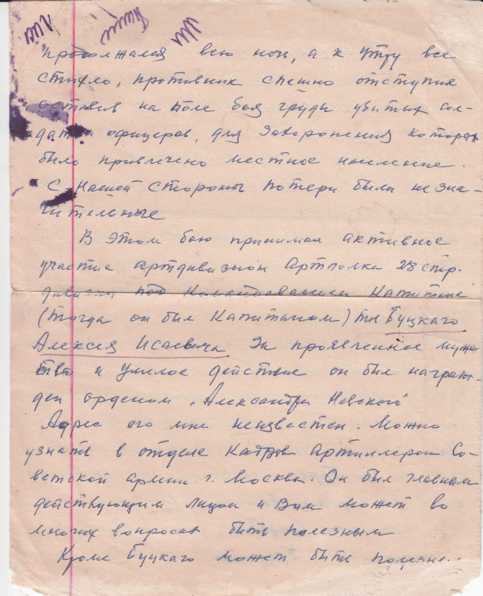 продолжался всю ночь, а к утру все
стихло, противник спешно отступил
оставив на поле боя груды убитых сол-
дат и офицеров, для захоронения которых
было привлечено местное население.
С нашей стороны потери были незна-
чительные
В этом бою принимал активное
участие артдивизион Артполка 28 стр.
дивизии под командованием капитана
(тогда он был капитаном) Буцкаго
Алексея Исаевича За проявленное муже-
ство и умелое действие он был награж-
ден орденом "Александра Невского
Адрес его мне неизвестен. Можно
узнать в отделе кадров артиллерии Со-
ветской армии г. Москва. Он был главным
действующим лицом и Вам может во
многих вопросах быть полезным
Кроме Буцкаго может быть